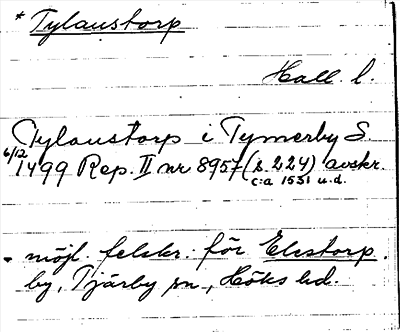 * Tylaustorp
Hall. l.
Tylaustorp i Tymerby S.
6/12 1499 Rep. II nr 8957 (s. 224) avskr.
c:a 1551 u.d.
- möjl. felskr. för Elestorp.
by, Tjärby sn, Höks hd.